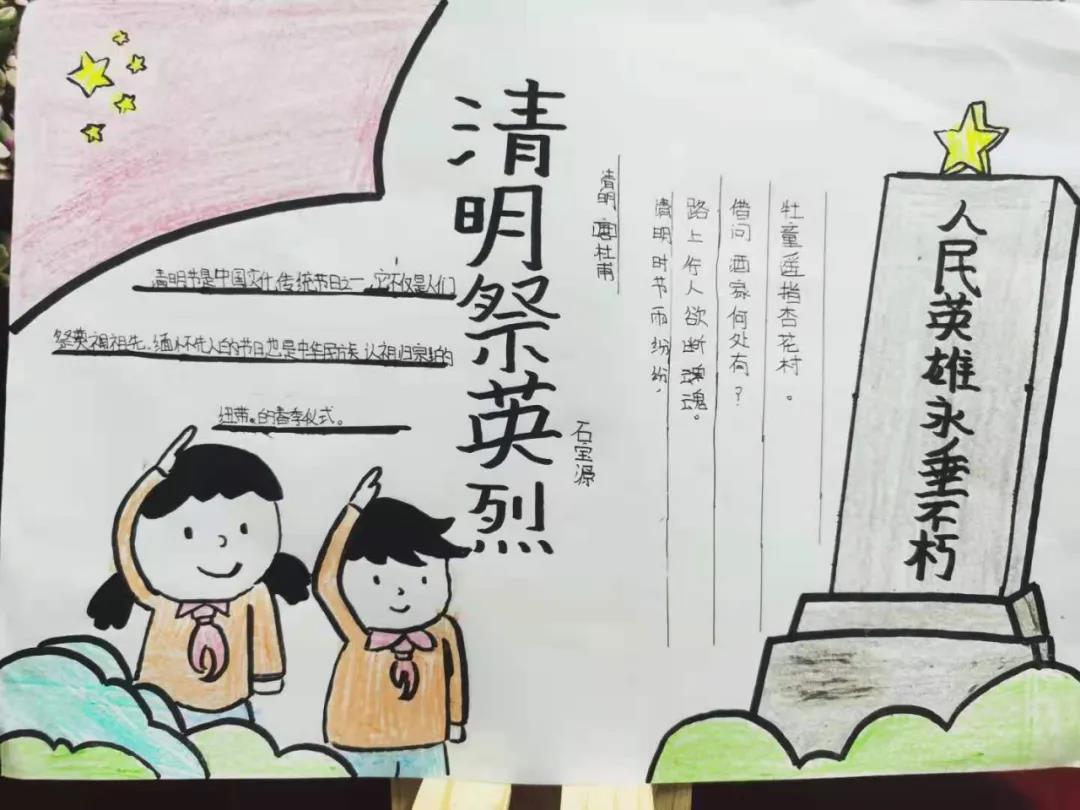 清明节是中国文什,传统节日之一,它不仅是人们
祭英祖祖先、缅怀先人的节日也是中华民族认祖归宗的
纽带。的春季仪式。
清明祭英烈
石宝源
清明 唐杜甫
清明时节雨纷纷,
路上行人欲断魂。
借问酒家何处有?
牡童遥指杏花村。
人民英雄永垂不朽